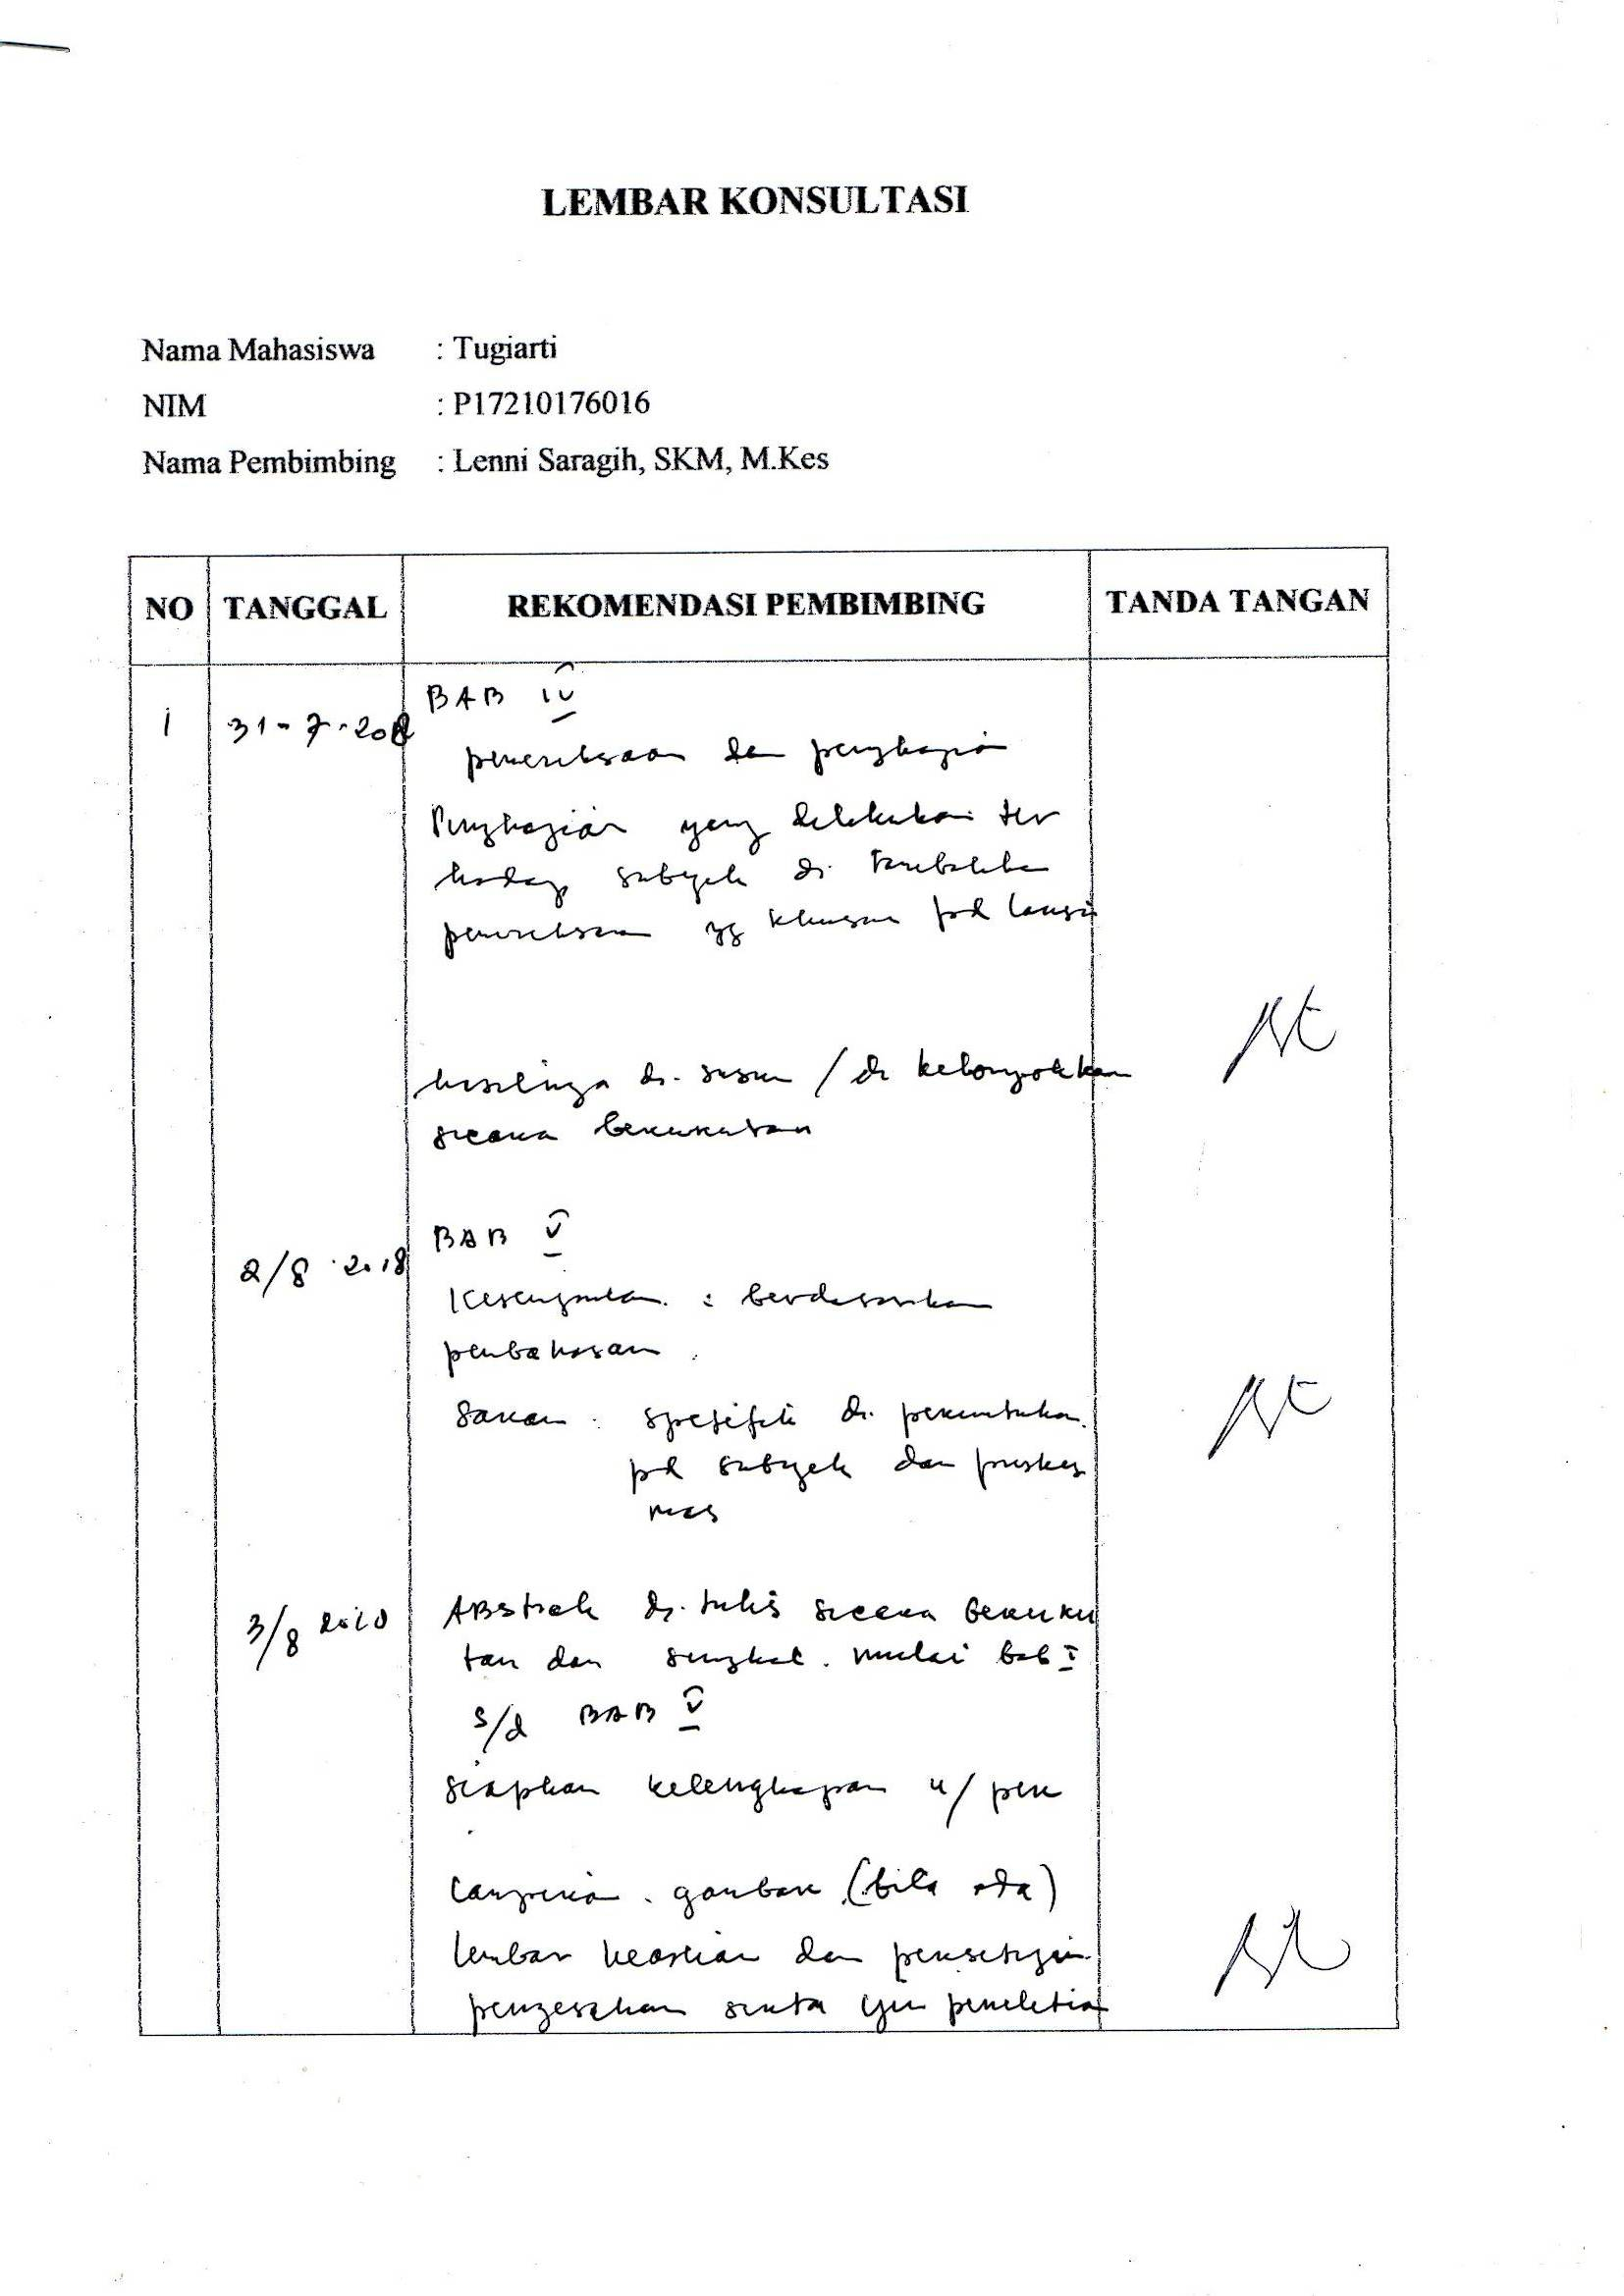 LEMBAR KONSULTASI
Nama Mahasiswa : Tugiarti
NIM : P17210176016
Nama Pembimbing : Lenni Saragih, SKM, M.Kes
NO TANGGAL REKOMENDASI PEMBIMBING TANDA TANGAN
BAB IV
1 31-7-2018
pemeriksaan dan pengkajian
Pengkajian yang dilakukan ter
hadap subyek di tambahkan
pemeriksaan yg khusus pd lansia
hasilnya di susun / di kelompokkan
secara berurutan
BAB V
2/8 2018
Kesimpulan : berdasarkan
pembahasan.
Saran : spesifik di peruntukan
pd subyek dan puskes
mas
3/8 2018 ABstrak di tulis secara beruru
tan dan singkat. mulai bab I
s/d BAB V
siapkan kelengkapan u/
lampiran. gambar (bila ada)
lembar keaslian dan persetujuan
pengesahan serta ijin penelitian